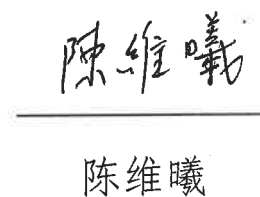 陳維曦
陈维曦